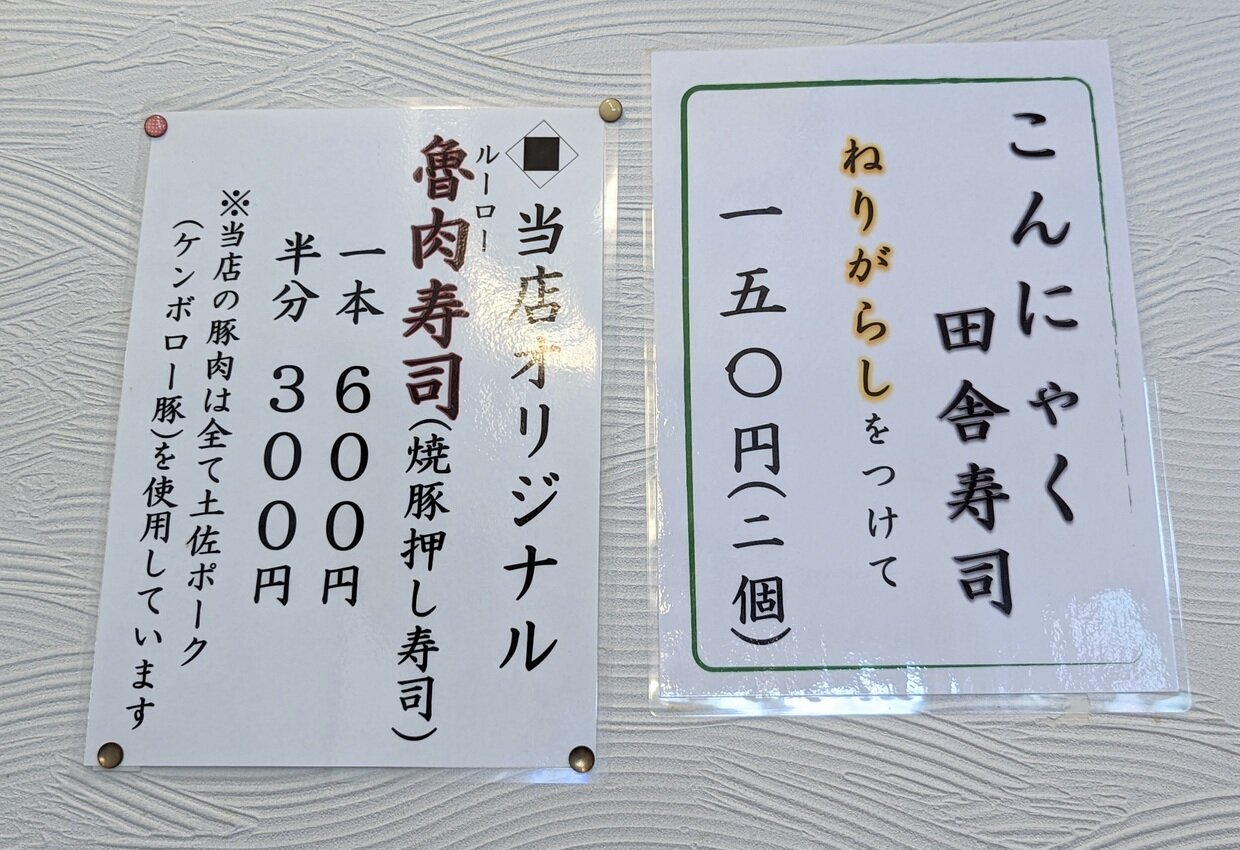 こんにゃく
田舎寿司
ねりがらしをつけて
一五〇円(二個)
当店オリジナル
ルーロー
魯肉寿司(焼豚押し寿司)
一本 600円
半分 300円
※当店の豚肉は全て土佐ポーク
(ケンボロー豚)を使用しています